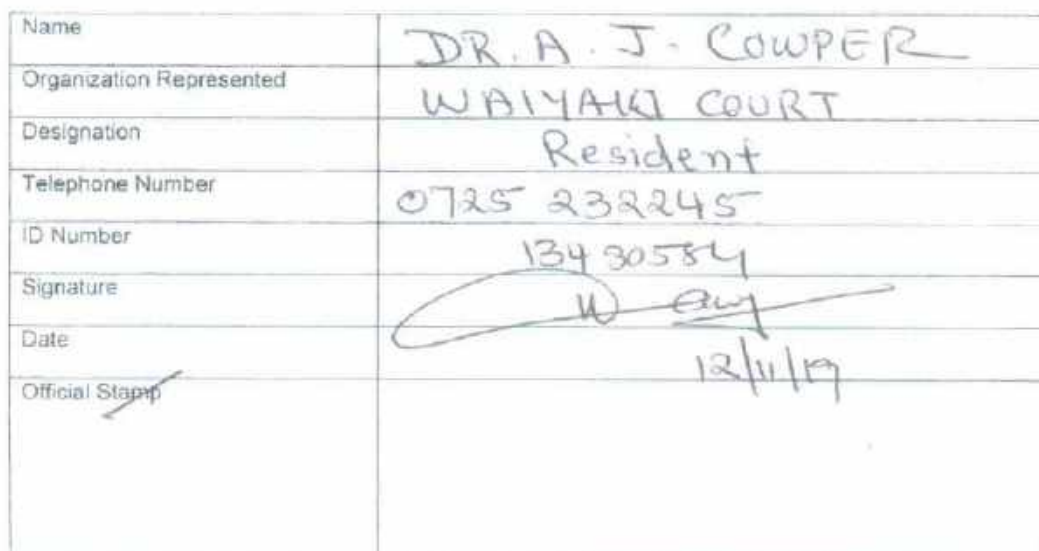 Name
DR. A. J. COWPER
Organization Represented
WAIYAKI COURT
Designation
Resident
Telephone Number
0725 232245
ID Number
13430584
Signature
Date
12/11/19
Official Stamp